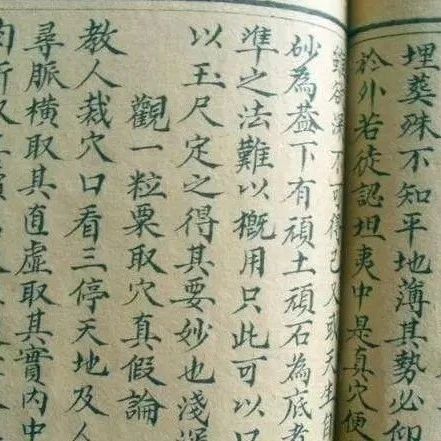 埋葬殊不知平地薄其勢必仰
於外若徒認坦夷中是真穴便
可得已又或天生自
砂為葢下有頑土頑石為底者
準之法難以概用只此可以
以玉尺定之得其要妙也淺深
觀一粒粟取穴真假論
教人裁穴口看三停天地及人
尋脈橫取其直虛取其實內中